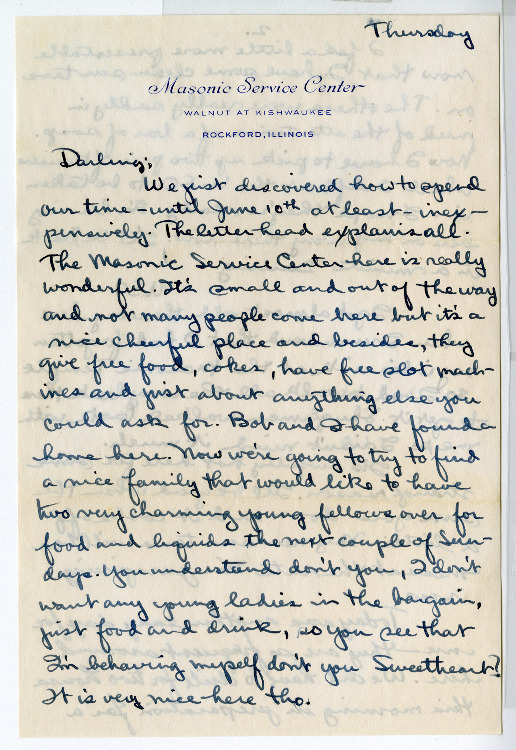 Thursday
Masonic Service Center
WALNUT AT KISHWAUKEE
ROCKFORD, ILLINOIS
Darling;
We just discovered how to spend
our time - until June 10th at least - inex-
pensively. The letter-head explains all.
The Masonic Service Center here is really
wonderful. It's small and out of the way
and not many people come here but it's a
nice cheerful place and besides, they
give free food, cokes, have free slot mach-
ines and just about anything else you
could ask for. Bob and I have found a
home here. Now we're going to try to find
a nice family that would like to have
two very charming young fellows over for
food and liquids the next couple of Sun-
days. You understand don't you, I don't
want any young ladies in the bargain,
just food and drink, so you see that
I'm behaving myself don't you Sweetheart?
It is very nice here tho.